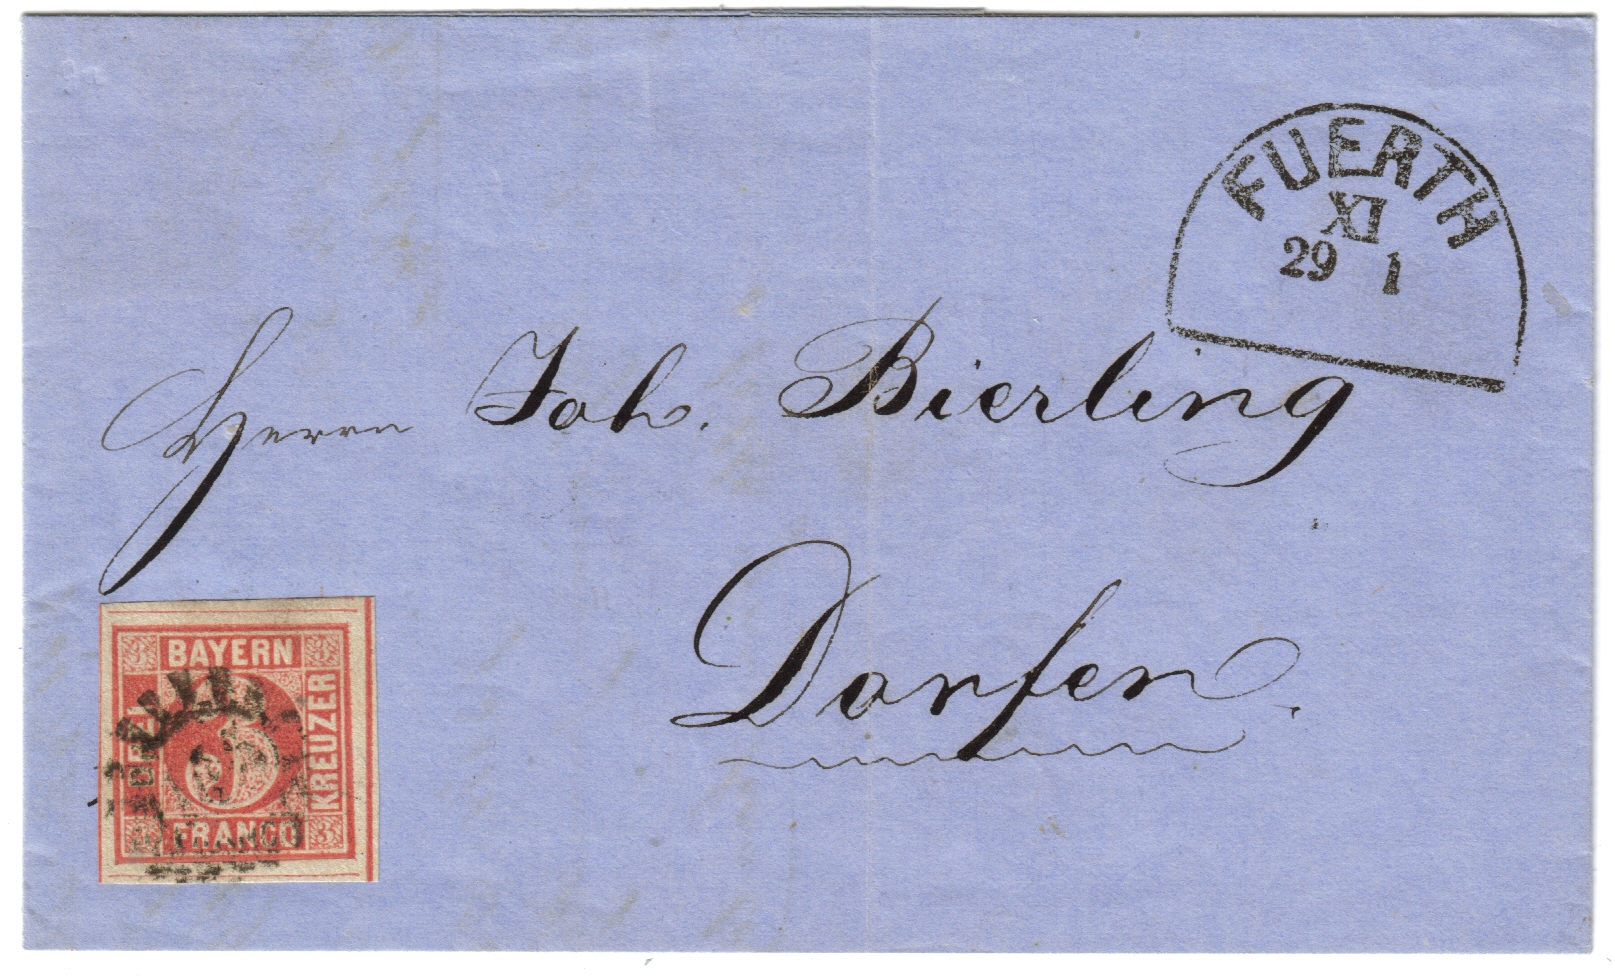 FUERTH
XI
29 1
Herrn Joh. Bierling
Dorfen.
BAYERN
DREI
KREUZER
FRANCO
3 3